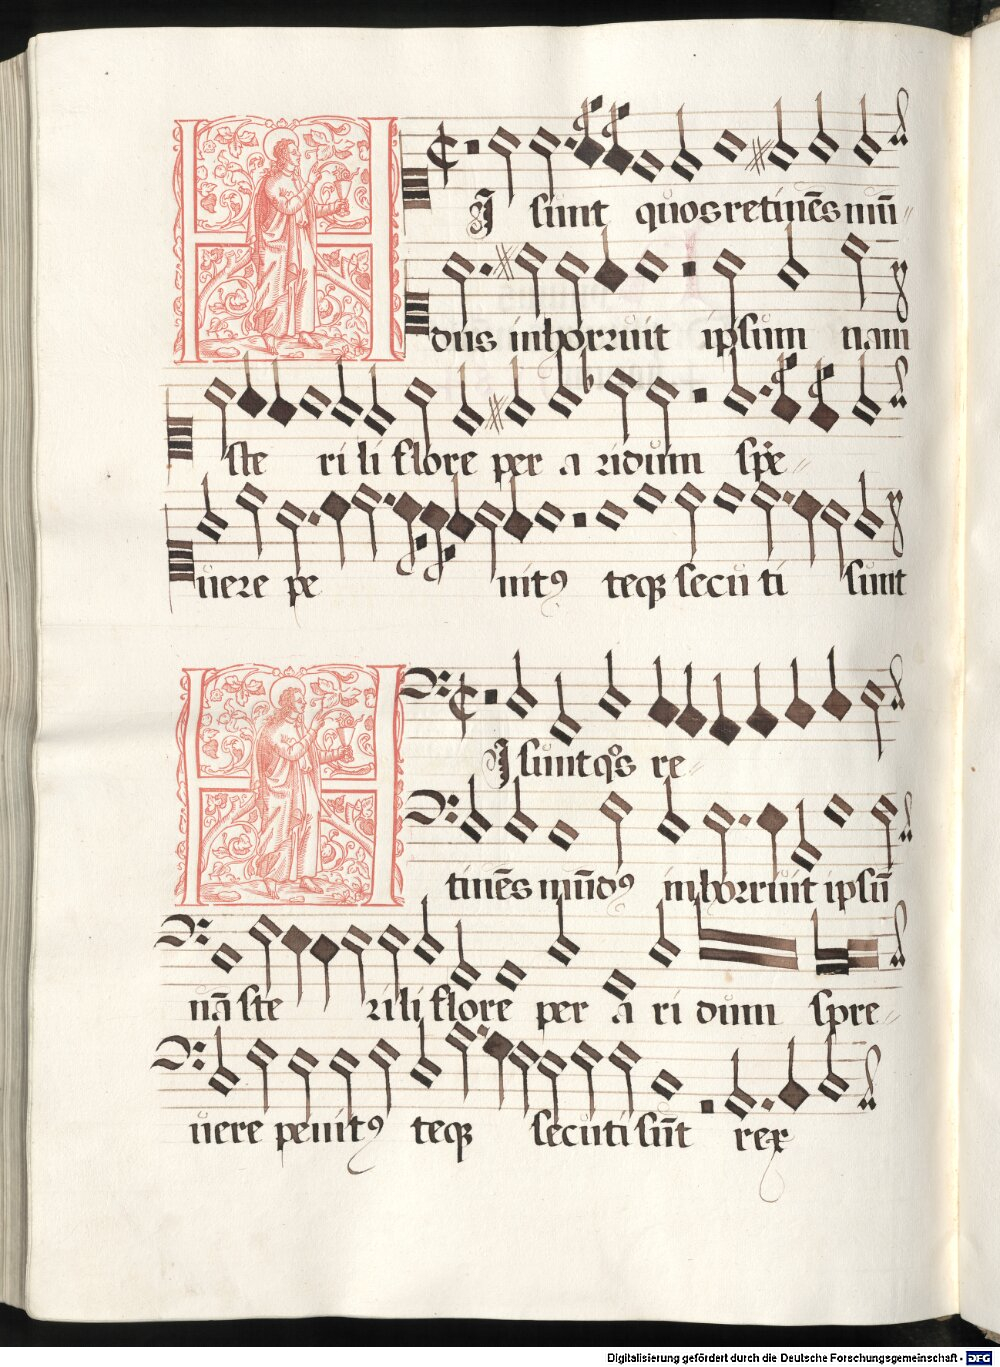 HI sunt quos retinēs mū
dus inhorruit ipsum nam
ste ri li flore per a ridum spe
uere pe nitꝰ teqꝫ secu ti sunt
HI sunt qͦs re
tinēs mūdꝰ inhorruit ipsū
nā ste rili flore per a ri dum spre
uere penitꝰ teqꝫ secuti sūt rex
Digitalisierung gefördert durch die Deutsche Forschungsgemeinschaft - DFG